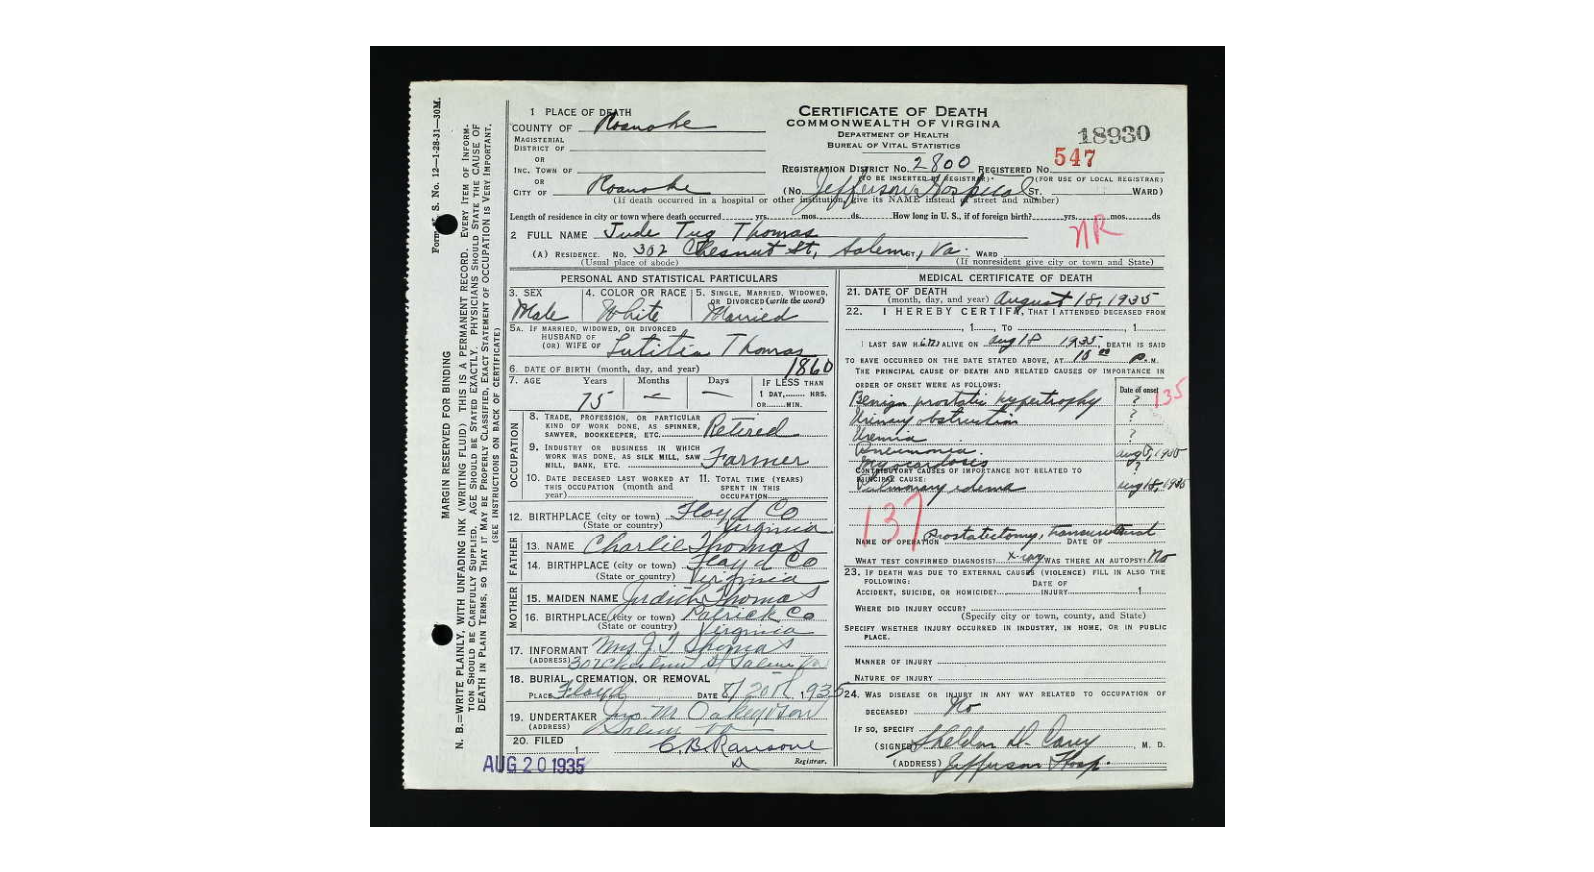 Form V. S. No. 12—1-28-31—30M.
MARGIN RESERVED FOR BINDING
N. B.—WRITE PLAINLY, WITH UNFADING INK (WRITING FLUID) THIS IS A PERMANENT RECORD. EVERY ITEM OF INFORM-
TION SHOULD BE CAREFULLY SUPPLIED. AGE SHOULD BE STATED EXACTLY. PHYSICIANS SHOULD STATE THE CAUSE OF
DEATH IN PLAIN TERMS, SO THAT IT MAY BE PROPERLY CLASSIFIED. EXACT STATEMENT OF OCCUPATION IS VERY IMPORTANT.
(SEE INSTRUCTIONS ON BACK OF CERTIFICATE)
CERTIFICATE OF DEATH
COMMONWEALTH OF VIRGINIA
DEPARTMENT OF HEALTH
BUREAU OF VITAL STATISTICS
18930
547
1 PLACE OF DEATH
COUNTY OF Roanoke
MAGISTERIAL
DISTRICT OF
OR
INC. TOWN OF
OR
CITY OF Roanoke
REGISTRATION DISTRICT NO. 2800 REGISTERED NO.
(TO BE INSERTED BY REGISTRAR) (FOR USE OF LOCAL REGISTRAR)
(No. Jefferson Hospital ST. WARD)
(If death occurred in a hospital or other institution, give its NAME instead of street and number)
Length of residence in city or town where death occurred yrs. mos. ds. How long in U. S., if of foreign birth? yrs. mos. ds
2 FULL NAME Jude Tug Thomas
NR
(A) RESIDENCE. No. 302 Chesnut St, Salem ST., Va. WARD
(Usual place of abode) (If nonresident give city or town and State)
PERSONAL AND STATISTICAL PARTICULARS
3. SEX Male
4. COLOR OR RACE White
5. SINGLE, MARRIED, WIDOWED, OR DIVORCED (write the word) Married
5A. IF MARRIED, WIDOWED, OR DIVORCED
HUSBAND OF
(OR) WIFE OF Lutitia Thomas
6. DATE OF BIRTH (month, day, and year) 1860
7. AGE Years 75 Months — Days — IF LESS THAN
1 DAY, HRS.
OR MIN.
OCCUPATION
8. TRADE, PROFESSION, OR PARTICULAR
KIND OF WORK DONE, AS SPINNER,
SAWYER, BOOKKEEPER, ETC. Retired
9. INDUSTRY OR BUSINESS IN WHICH
WORK WAS DONE, AS SILK MILL, SAW
MILL, BANK, ETC. Farmer
10. DATE DECEASED LAST WORKED AT
THIS OCCUPATION (month and
year)
11. TOTAL TIME (YEARS)
SPENT IN THIS
OCCUPATION
12. BIRTHPLACE (city or town) Floyd Co
(State or country) Virginia
FATHER
13. NAME Charlie Thomas
14. BIRTHPLACE (city or town) Floyd Co
(State or country) Virginia
MOTHER
15. MAIDEN NAME Judith Thomas
16. BIRTHPLACE (city or town) Patrick Co
(State or country) Virginia
17. INFORMANT Mrs J. T. Thomas
(ADDRESS) 302 Salem Va
18. BURIAL, CREMATION, OR REMOVAL
PLACE Floyd DATE 8/20th 1935
19. UNDERTAKER Jno. M. Oakey
(ADDRESS) Salem Va
20. FILED 1 C. B. Ransone
Registrar.
AUG 20 1935
MEDICAL CERTIFICATE OF DEATH
21. DATE OF DEATH
(month, day, and year) August 18, 1935
22. I HEREBY CERTIFY, THAT I ATTENDED DECEASED FROM
, 1 , TO , 1
I LAST SAW HIM ALIVE ON Aug 18 1935, DEATH IS SAID
TO HAVE OCCURRED ON THE DATE STATED ABOVE, AT 10 00 P. M.
THE PRINCIPAL CAUSE OF DEATH AND RELATED CAUSES OF IMPORTANCE IN
ORDER OF ONSET WERE AS FOLLOWS:
Date of onset
Benign prostatic hypertrophy ? 135
Urinary obstruction ?
Uremia ?
Pneumonia. Aug 1935
Myocardosis ?
CONTRIBUTORY CAUSES OF IMPORTANCE NOT RELATED TO
PRINCIPAL CAUSE:
Pulmonary edema Aug 18, 1935
137
NAME OF OPERATION Prostatectomy, transurethral DATE OF
WHAT TEST CONFIRMED DIAGNOSIS? X-ray WAS THERE AN AUTOPSY? No
23. IF DEATH WAS DUE TO EXTERNAL CAUSES (VIOLENCE) FILL IN ALSO THE
FOLLOWING: DATE OF
ACCIDENT, SUICIDE, OR HOMICIDE? INJURY 1
WHERE DID INJURY OCCUR?
(Specify city or town, county, and State)
SPECIFY WHETHER INJURY OCCURRED IN INDUSTRY, IN HOME, OR IN PUBLIC
PLACE.
MANNER OF INJURY
NATURE OF INJURY
24. WAS DISEASE OR INJURY IN ANY WAY RELATED TO OCCUPATION OF
DECEASED? No
IF SO, SPECIFY
(SIGNED) Sheldon D. Carey, M. D.
(ADDRESS) Jefferson Hosp.